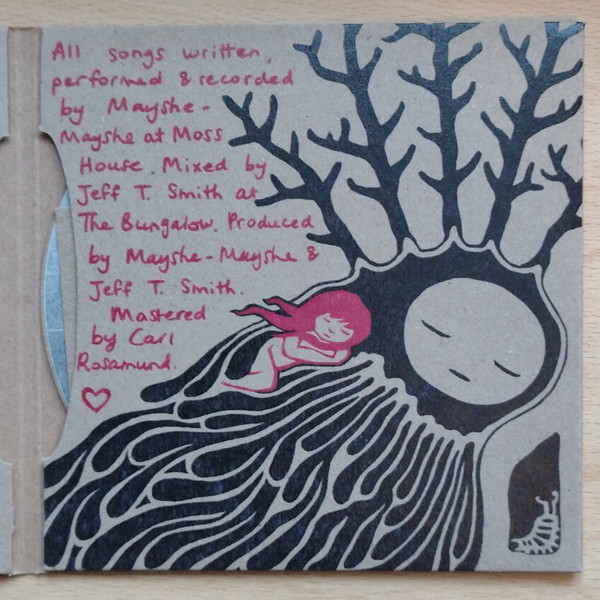 All songs written,
performed & recorded
by Mayshe-
Mayshe at Moss
House. Mixed by
Jeff T. Smith at
The Bungalow. Produced
by Mayshe-Mayshe &
Jeff T. Smith.
Mastered
by Carl
Rosamund.